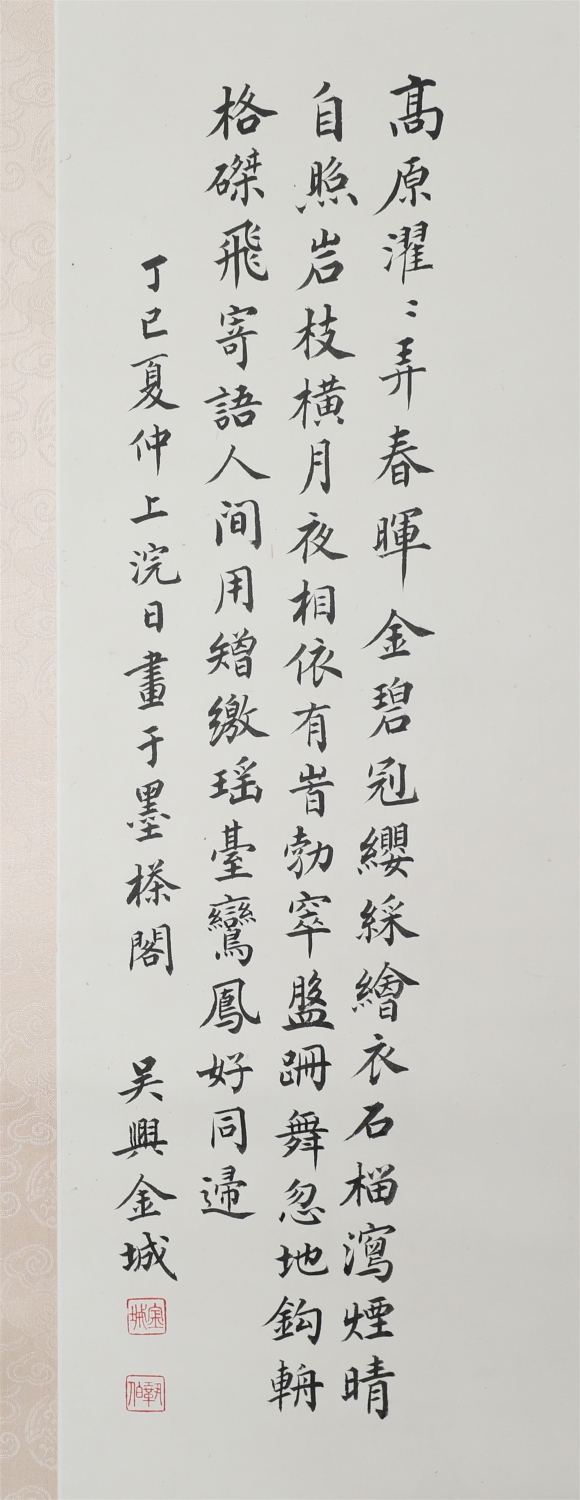 高原濯〻弄春暉金碧冠纓綵繪衣石榴瀉煙晴
自照岩枝橫月夜相依有旹勃窣盤跚舞忽地鈎輈
格磔飛寄語人間用矰繳瑶臺鸞鳳好同歸
丁巳夏仲上浣日畫于墨㯓閣
吴興金城
金城
鞏伯